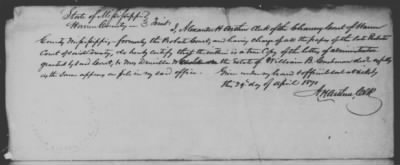 State of Mississippi
Warren County } Sct
I, Alexander H Arthur Clerk of the Chancery Court of Warren
County Mississippi - formerly the Probate Court, and having charge of all the papers of the late Probate
Court of said County, do hereby certify that the within is a true Copy of the letters of administration
granted by said Court, to Mrs on the Estate of William B. decd as fully
as the same appears on file in my said office. Given under my hand & official seal at
the 29 day of April 1871
A H Arthur, Clk